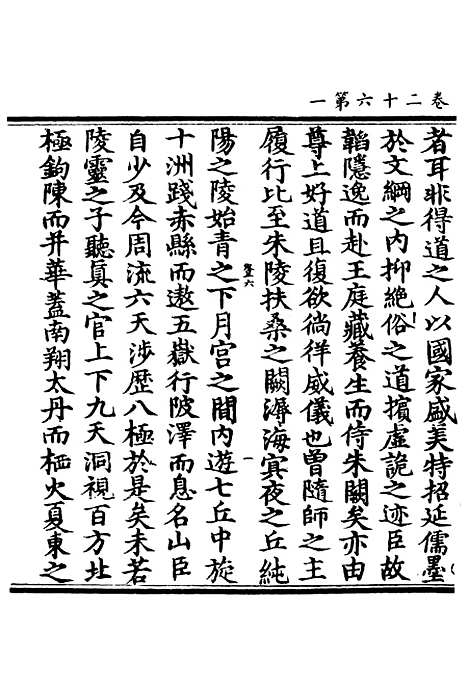 卷二十六第一
者耳非得道之人以國家盛美特招延儒墨
於文綱之內抑絶俗之道擯虛詭之迹臣故
韜隱逸而赴王庭藏養生而侍朱闕矣亦由
尊上好道且復欲徜徉威儀也曾隨師之主
履行比至朱陵扶桑之闕溽海㝠夜之丘純
登六 一
陽之陵始青之下月宮之間內遊七丘中旋
十洲踐赤縣而遨五嶽行陂澤而息名山臣
自少及今周流六天涉歷八極於是矣未若
陵靈之子聽眞之官上下九天洞視百方北
極鉤陳而并華蓋南翔太丹而栖火夏東之